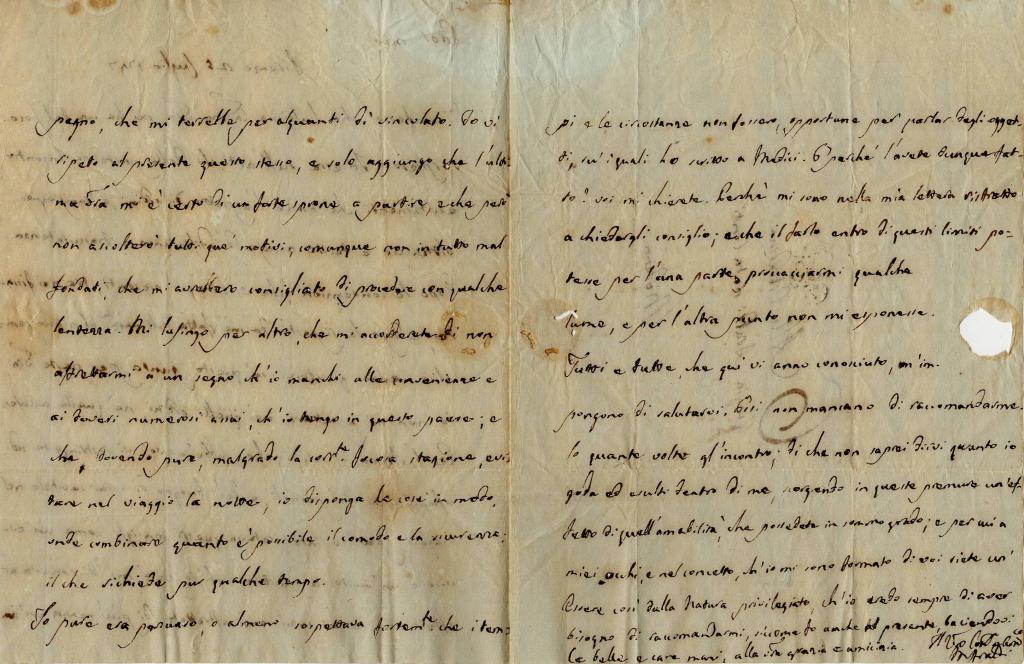 pegno, che mi terrebbe per alquanti dì vincolato. Io vi
ripeto al presente questo stesso, e solo aggiungo che l'ulti
ma Vra mi è certo di un forte sprone a partire, e che però
non ascolterò tutti que' motivi, comunque non in tutto mal
fondati, che mi avrebbero consigliato di procedere con qualche
lentezza. Mi lusingo per altro, che mi accorderete di non
affrettarmi a un segno ch'io manchi alle convenienze e
ai doveri numerosi assai, ch'io tengo in questo paese; e
che, dovendo pure, malgrado la corrte. focosa stagione, evi
tare nel viaggio la notte, io disponga le cose in modo,
onde combinare quanto è possibile il comodo e la sicurezza;
il che richiede pur qualche tempo.
Io pure era persuaso, o almeno sospettava fortemte. che i tem=
pi e le circostanze non fossero, opportune per parlar degli ogget-
ti, su' i quali ho scritto a Medici. E perché l'avete dunque fat-
to? voi mi chiedete. Perchè mi sono nella mia lettera ristretto
a chiedergli consiglio; e che il farlo entro di questi limiti po-
tesse per l'una parte, procacciarmi qualche
lume, e per l'altra punto non mi esponesse.
Tutti e tutte, che qui vi anno conosciuto, m'im-
pongono di salutarvi. Essi non mancano di raccomandarme-
lo quante volte gl'incontro; di che non saprei dirvi quanto io
goda ed esulti dentro di me, scorgendo in queste premure un'ef-
fetto di quell'amabilità, che possedete in sommo grado; e per cui a
miei occhi, e nel concetto, ch'io mi sono formato di voi siete un'
Essere così dalla Natura privilegiato, ch'io credo sempre di aver
bisogno di raccomandarmi, siccome fo anche al presente, baciandovi
le belle e care mani, alla Vra grazia e amicizia.
Il Vro